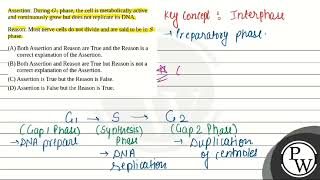 Assertion: During G₁ phase, the cell is metabolically active
and continuously grow but does not replicate its DNA.
Reason: Most nerve cells do not divide and are said to be in S
phase.
(A) Both Assertion and Reason are True and the Reason is a
correct explanation of the Assertion.
(B) Both Assertion and Reason are True but Reason is not a
correct explanation of the Assertion.
(C) Assertion is True but the Reason is False.
(D) Assertion is False but the Reason is True.
Key Concept : Interphase
→ Preparatory phase.
(
G₁ → S → G₂
(Gap 1 Phase) (Synthesis) (Gap 2 Phase)
→ DNA prepare Phase → Duplication
→ DNA of centrioles
replication
PW